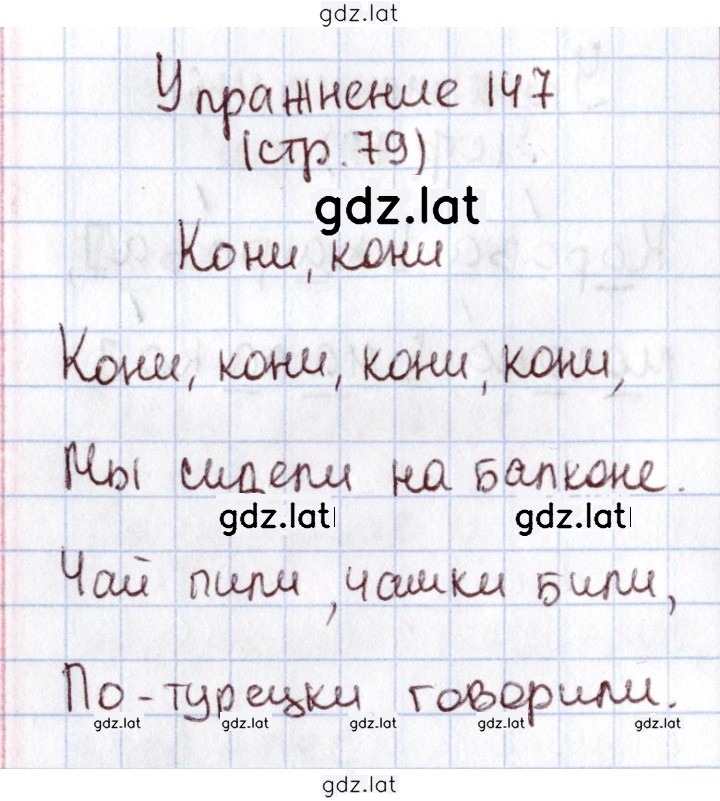 gdz.lat
Упражнение 147
(стр. 79)
gdz.lat
Кони, кони
Кони, кони, кони, кони,
Мы сидели на балконе.
gdz.lat gdz.lat
Чай пили, чашки били,
По-турецки говорили.
gdz.lat gdz.lat gdz.lat gdz.lat gdz.lat
gdz.lat